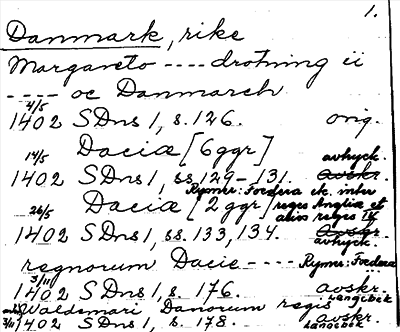 1.
Danmark, rike
Margareto ---- drotning ii
---- oc Danmarch
4/5
1402 SDns 1, s. 126. orig.
Daciæ [6 ggr]
14/5 avtryck.
1402 SDns 1, ss. 129-131. avskr.
Rymer: Foedera etc. inter
Daciæ [2 ggr] reges Angliæ et
alios reges IV
26/5
1402 SDns 1, ss. 133, 134. avtryck.
regnorum Dacie ---- Rymer: Foedera
3/11
1402 SDns 1, s. 176. avskr.
Langebek
Waldemari Danorum regis
1402 SDns 1, s. 178. avskr.
Langebek